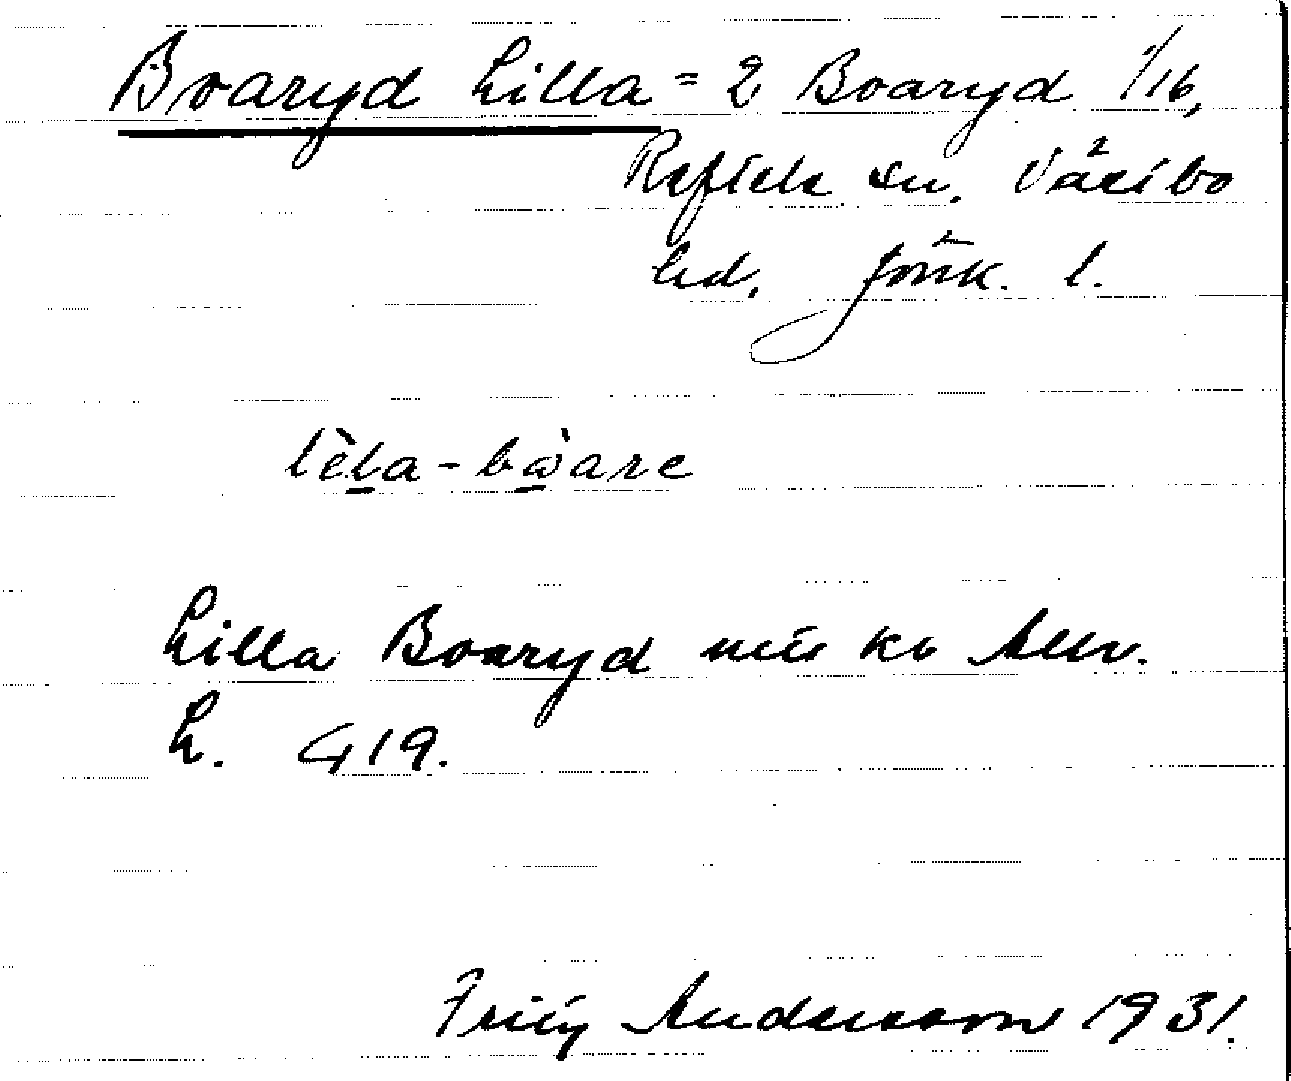 Boaryd Lilla = 2 Boaryd 1/16,
Reftele sn, Västbo
hd, Jönk. l.
lèla-bòare
Lilla Boaryd
L. 419.
Andersson 1931.